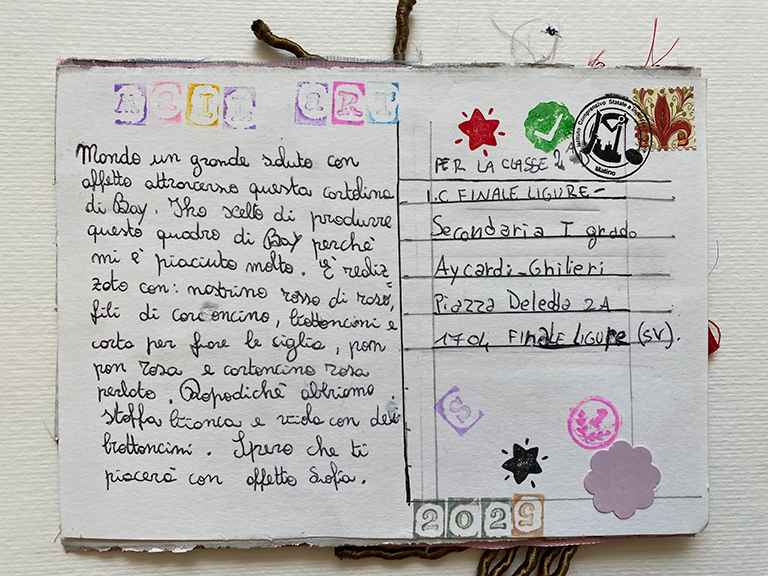 MAIL ART
Mondo un grande saluto con
affetto attraverso questa cartolina
di Bay. Iho scelto di produrre
questo quadro di Bay perché
mi è piaciuto molto. È realiz=
zato con: nastrino rosso di raso,
fili di cordoncino, bottoncini e
carta per fare le ciglia, pom
pon rosa e cartoncino rosa
perlato. Dopodiché abbiamo
stoffa bianca e viola con dei
bottoncini. Spero che ti
piacerà con affetto Sofia.
PER LA CLASSE 2A
I.C FINALE LIGURE-
Secondaria I grado
Aycardi-Ghilieri
Piazza Deledda 2A
1704 FINALE LIGURE (SV).
S
2025